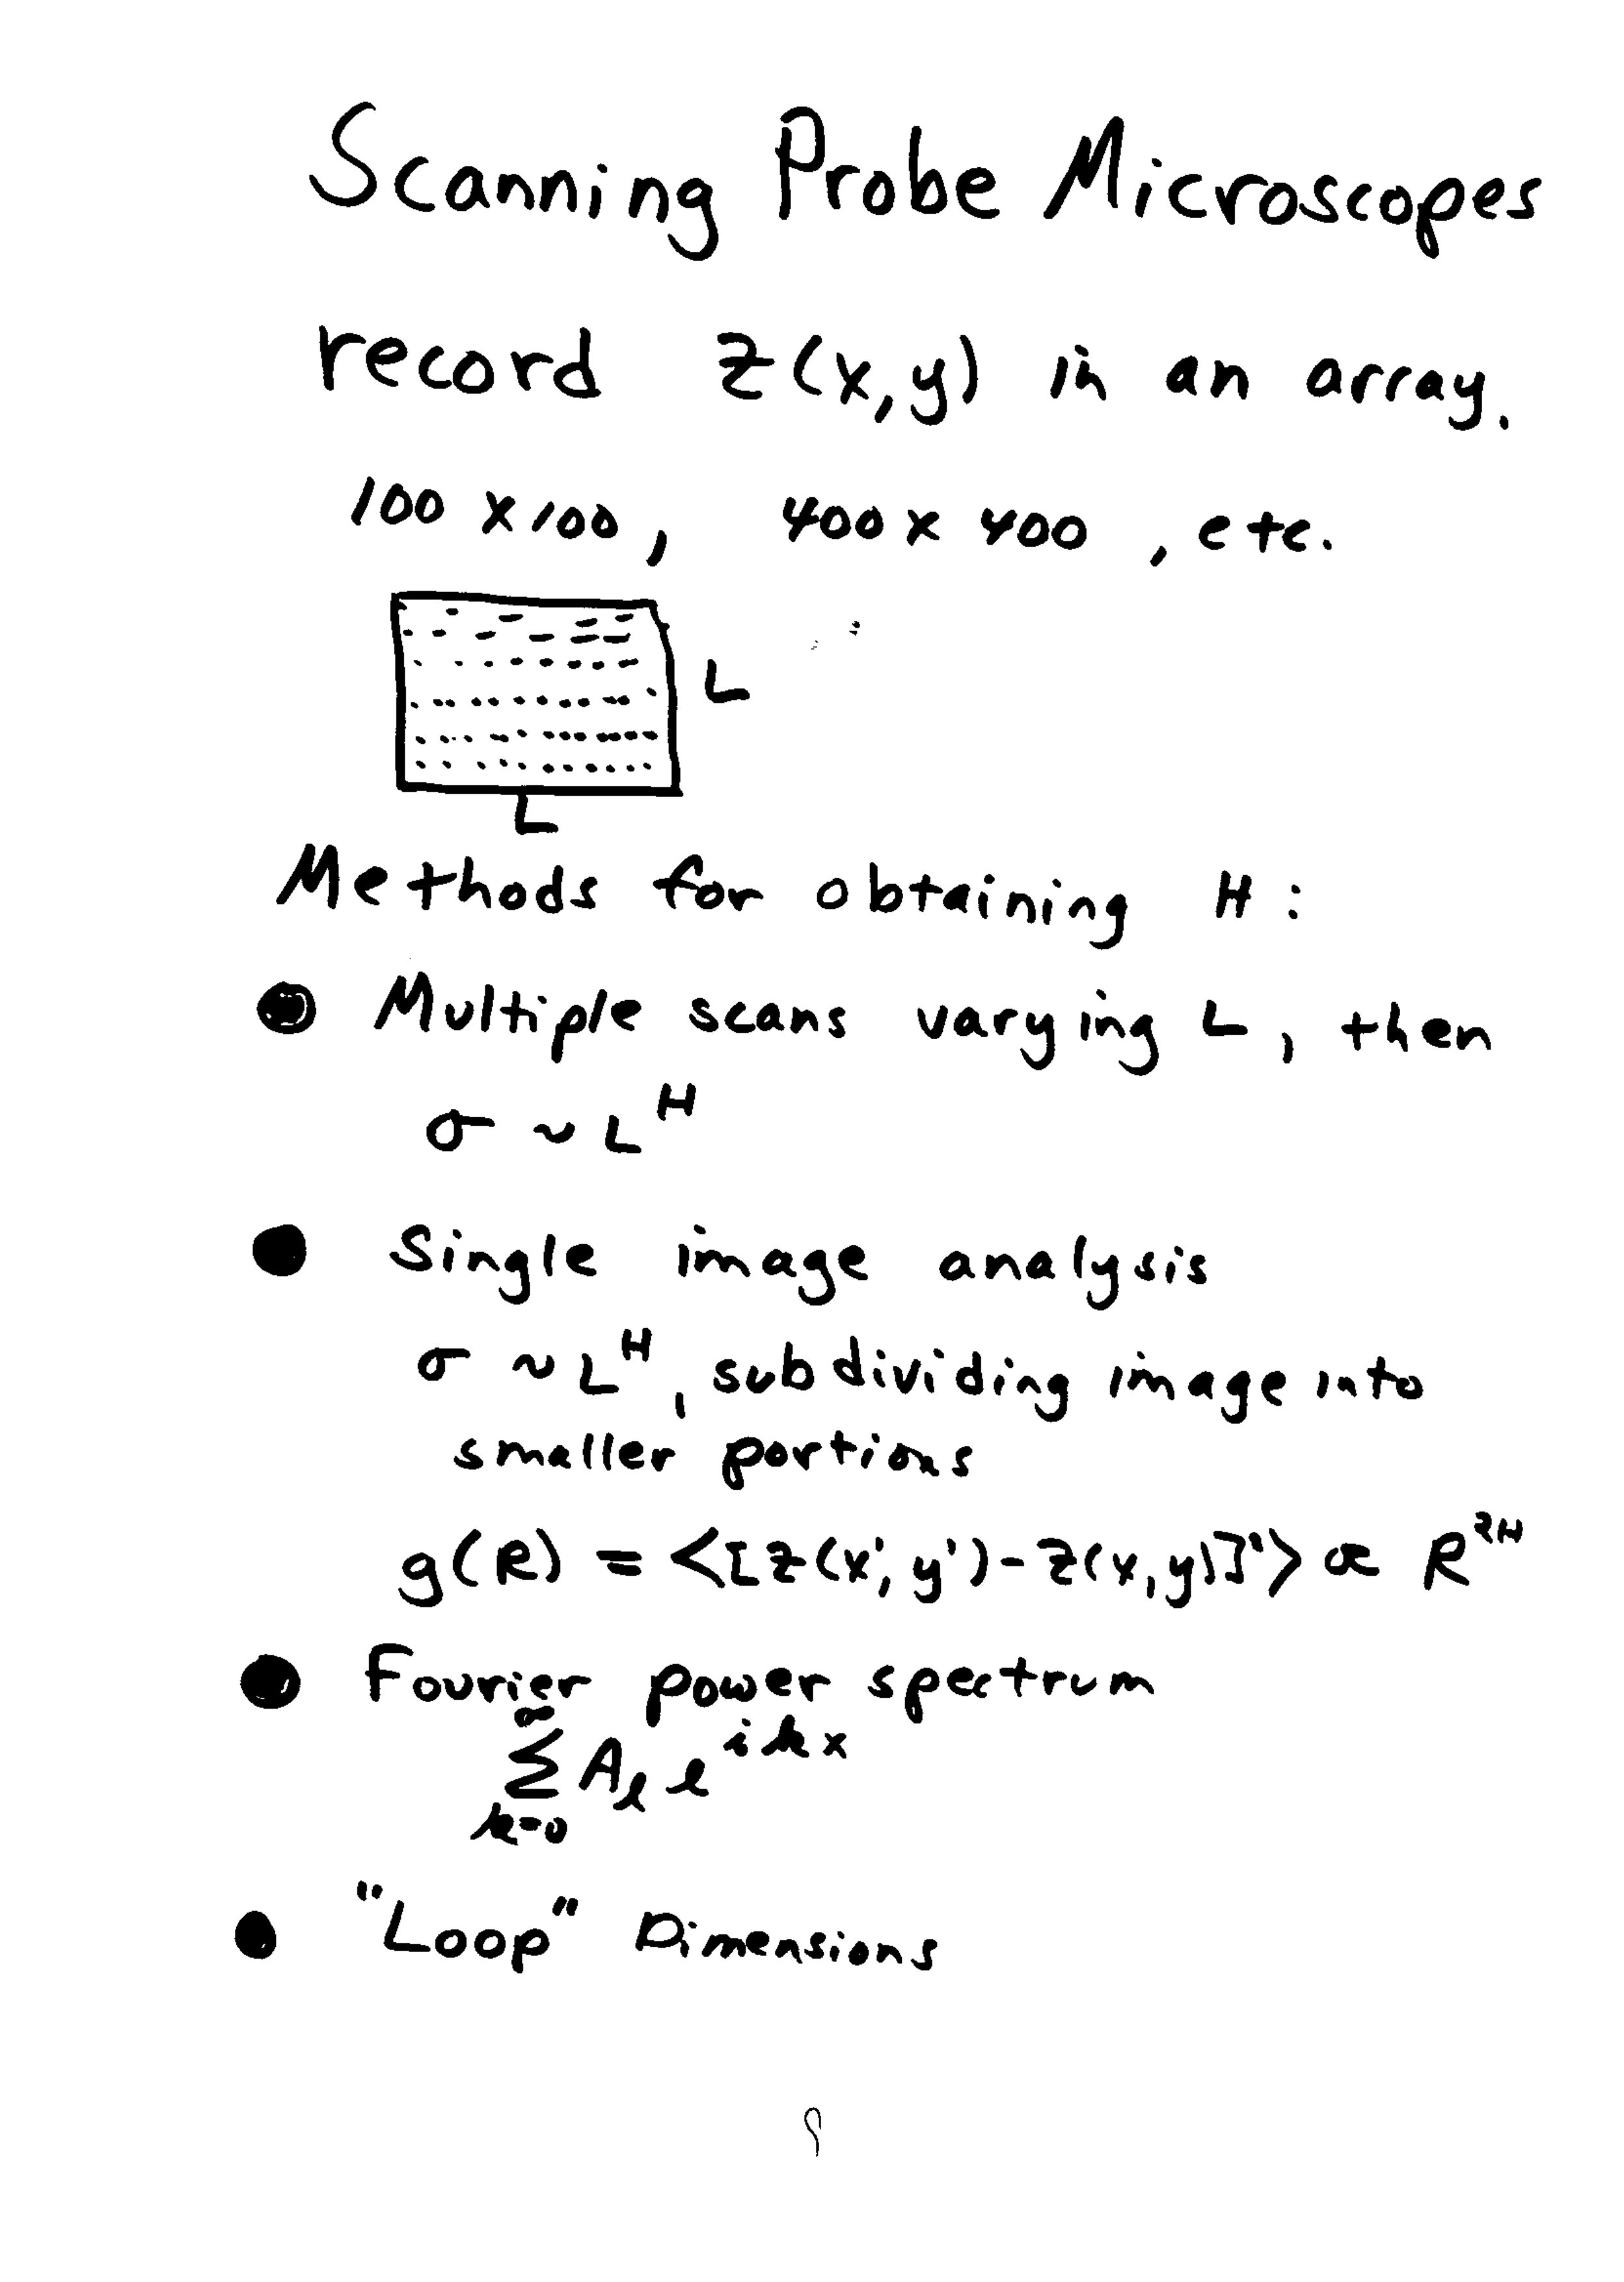 Scanning Probe Microscopes
record z(x,y) in an array.
100 x 100, 400 x 400, etc.
L
L
Methods for obtaining H:
● Multiple scans varying L, then
σ ~ L^H
● Single image analysis
σ ~ L^H, subdividing image into
smaller portions
g(R) = <[z(x', y') - z(x,y)]²> ∝ R^2H
● Fourier power spectrum
∞
Σ A_l e^ikx
k=0
● "Loop" Dimensions